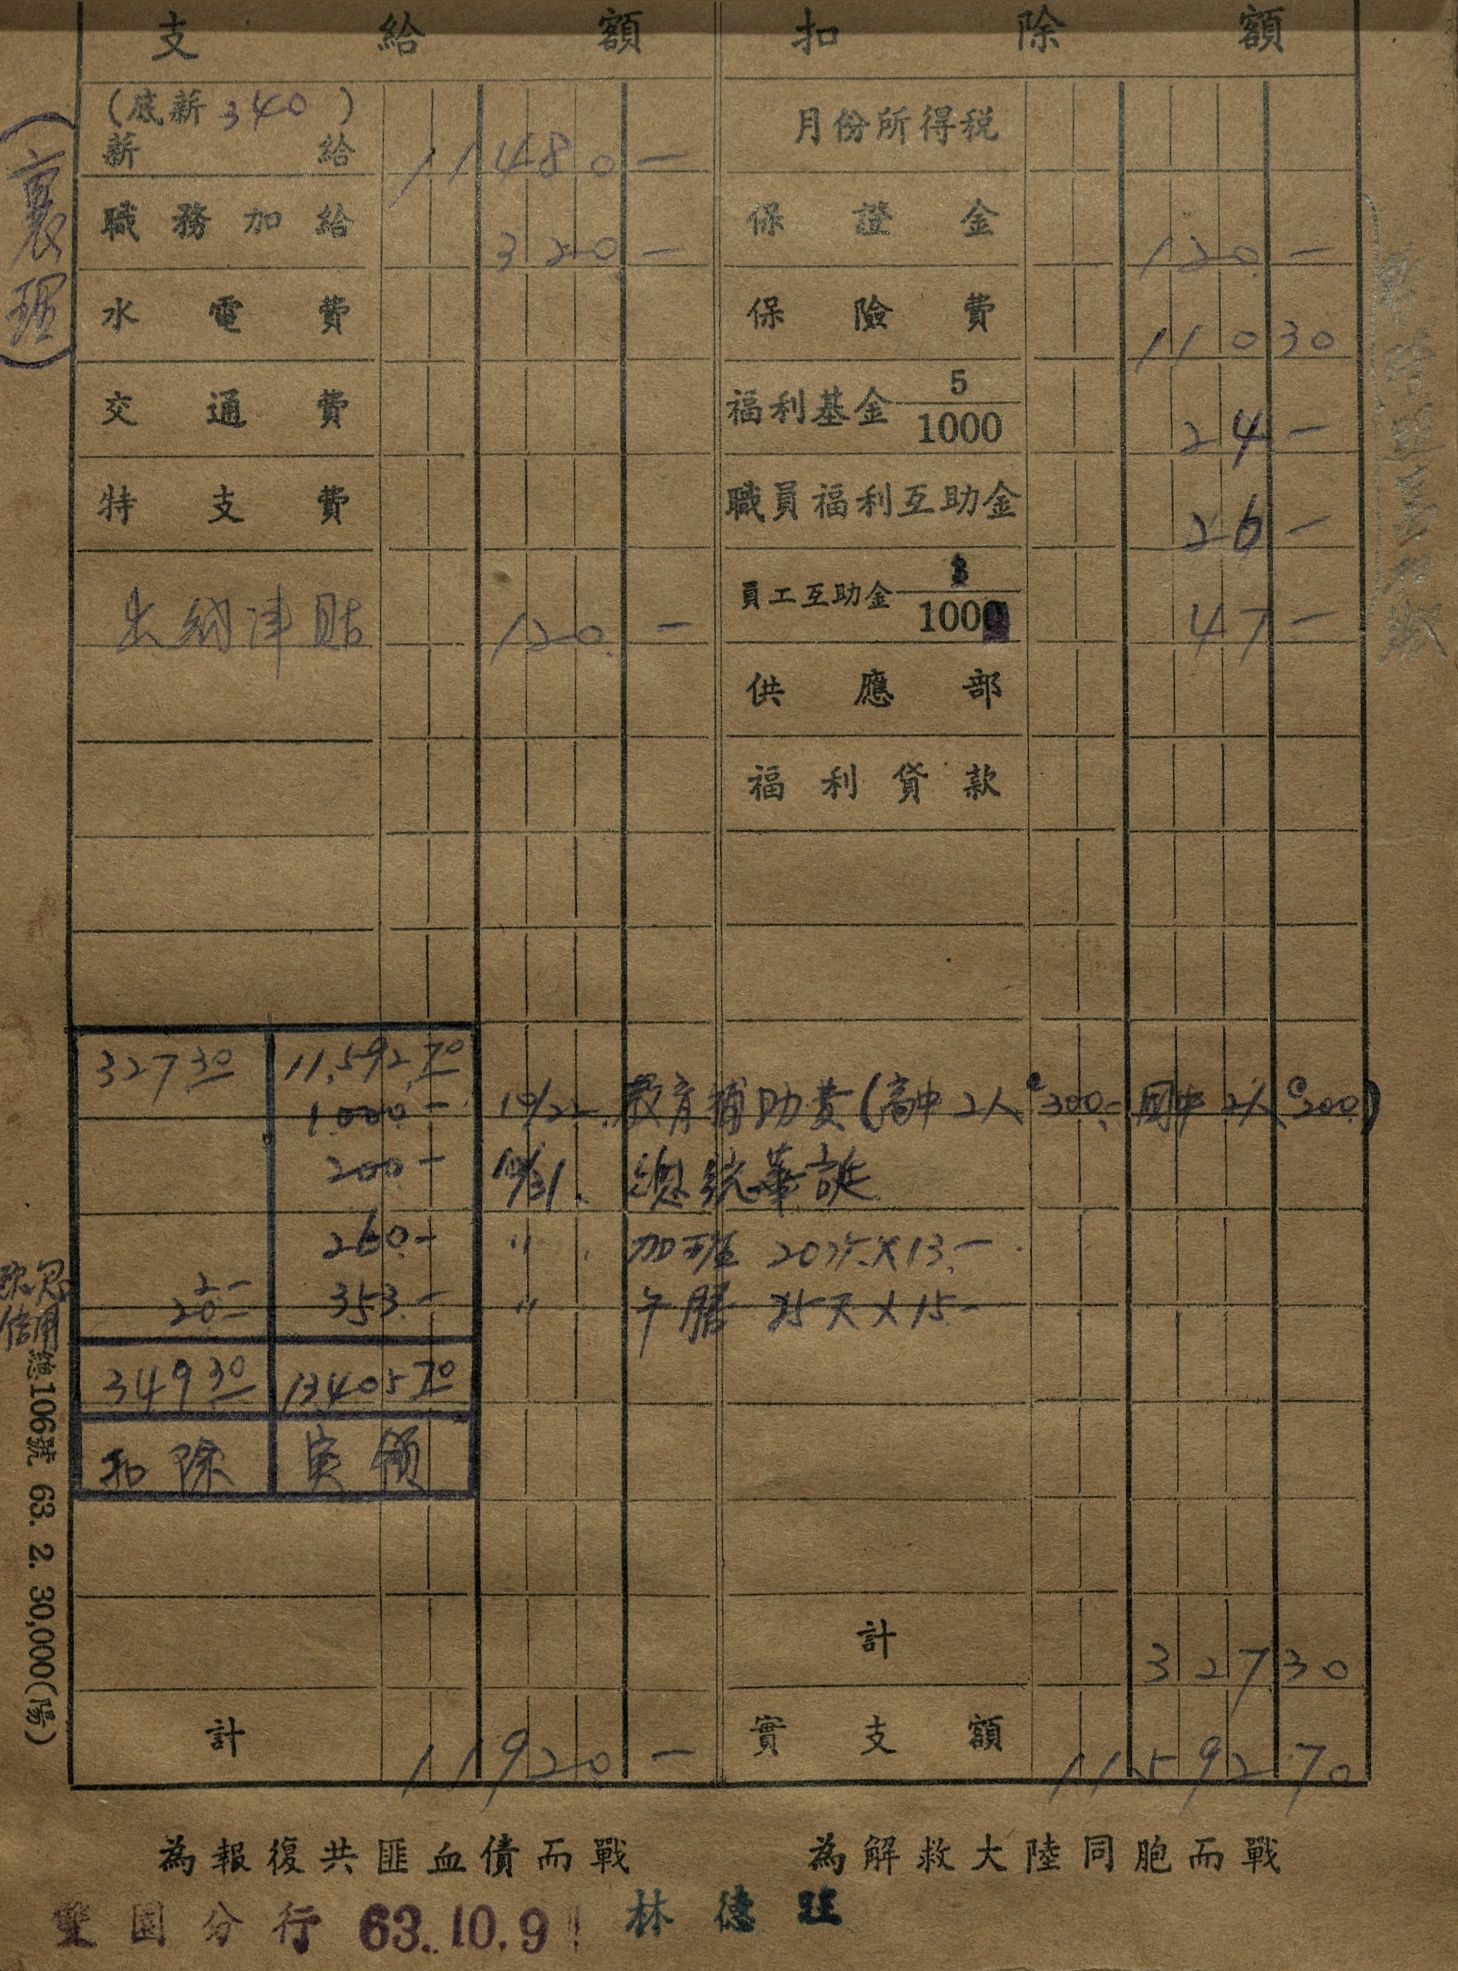 支給額 扣除額
(底薪340)
薪給 11480- 月份所得稅
職務加給 320.- 保證金 120.-
水電費 保險費 11030
交通費 福利基金 5/1000 24-
特支費 職員福利互助金 26-
出納津貼 120.- 員工互助金 3/1000 47-
供應部
福利貸款
(襄理)
327 30 11,592.70
1.000.- 10/22. 教育補助費(高中2人@300.- 国中2人@200.)
200- 10/31. 總統華誕
260.- 〃 加班 20次×13.-
353.- 〃 午膳 25天×15-
349 30 13405 70
扣除 実領
計 327 30
計 11920.- 實支額 11592.70
總106號 63. 2. 30,000(陽)
為報復共匪血債而戰 為解救大陸同胞而戰
雙園分行 63.10.9 林德旺